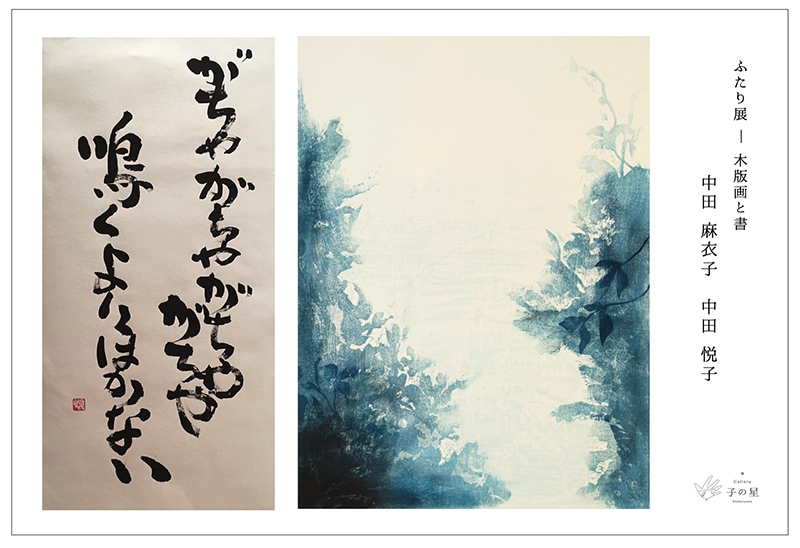 ふたり展 ― 木版画と書
中田 麻衣子 中田 悦子
がちやがちやがちや
がちや
鳴くよりほかない
Gallery
子の星